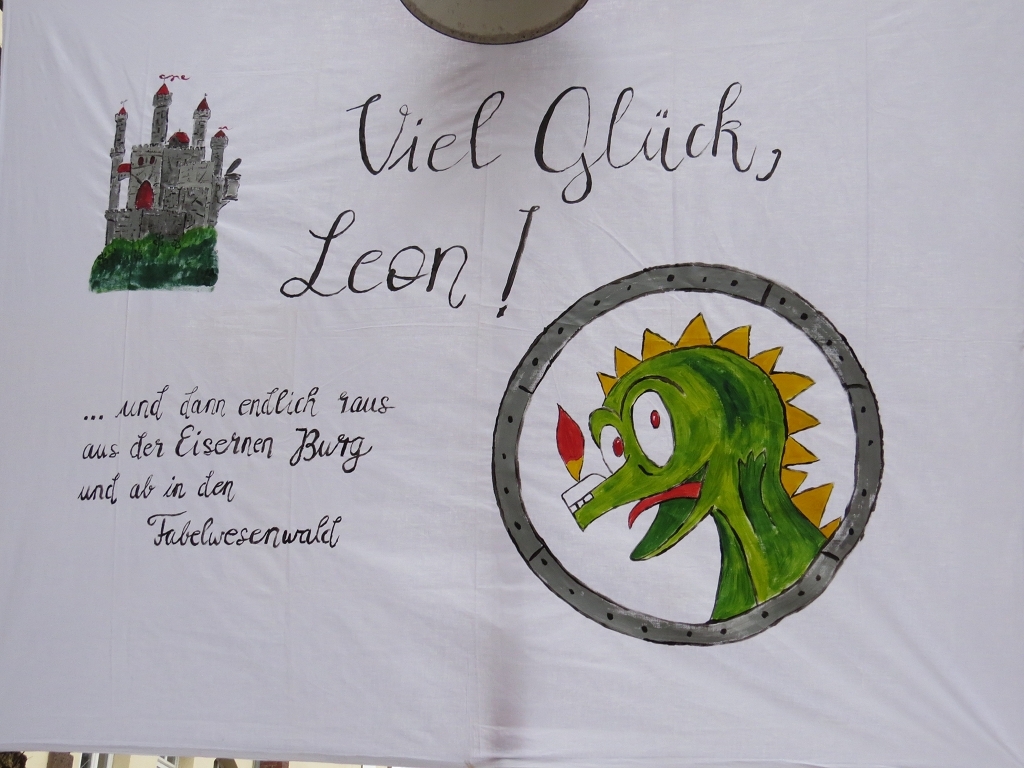 Viel Glück,
Leon!
... und dann endlich raus
aus der Eisernen Burg
und ab in den
Fabelwesenwald